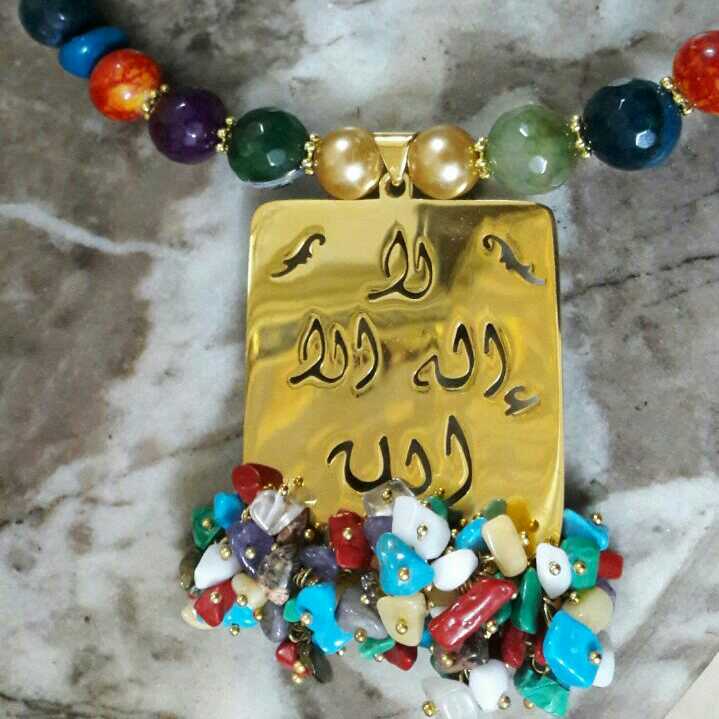 لا
إله الا
الله